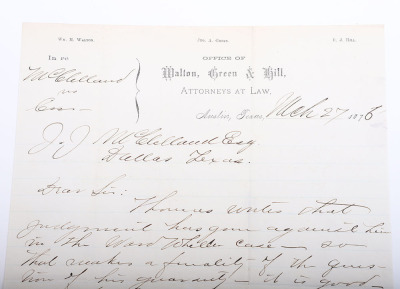 Wm. M. Walton. Jno. A. Green. R. J. Hill.
OFFICE OF
In re
Walton, Green & Hill,
McClelland
Attorneys at Law,
vs
Austin, Texas, Mch 27 1876
J. J. McClelland Esq.
Dallas Texas.
Dear Sir:
Thomas writes that
judgment has gone against him
in the Ward White case – so
that makes a finality of the ques-
tion of his guaranty – it is good –